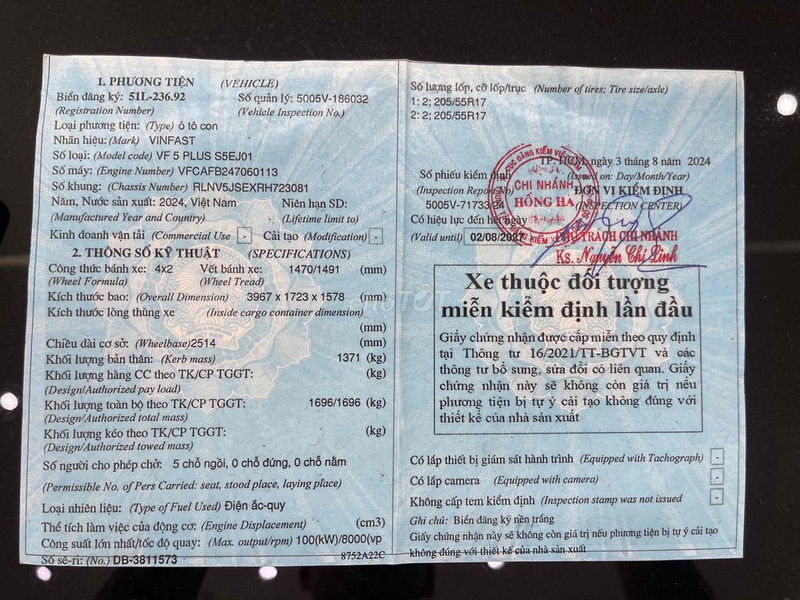 1. PHƯƠNG TIỆN (VEHICLE)
Biển đăng ký: 51L-236.92 Số quản lý: 5005V-186032
(Registration Number) (Vehicle Inspection No.)
Loại phương tiện: (Type) ô tô con
Nhãn hiệu: (Mark) VINFAST
Số loại: (Model code) VF 5 PLUS S5EJ01
Số máy: (Engine Number) VFCAFB247060113
Số khung: (Chassis Number) RLNV5JSEXRH723081
Năm, Nước sản xuất: 2024, Việt Nam Niên hạn SD:
(Manufactured Year and Country) (Lifetime limit to)
Kinh doanh vận tải (Commercial Use) - Cải tạo (Modification) -
2. THÔNG SỐ KỸ THUẬT (SPECIFICATIONS)
Công thức bánh xe: 4x2 Vết bánh xe: 1470/1491 (mm)
(Wheel Formula) (Wheel Tread)
Kích thước bao: (Overall Dimension) 3967 x 1723 x 1578 (mm)
Kích thước lòng thùng xe (Inside cargo container dimension)
(mm)
Chiều dài cơ sở: (Wheelbase) 2514 (mm)
Khối lượng bản thân: (Kerb mass) 1371 (kg)
Khối lượng hàng CC theo TK/CP TGGT: (kg)
(Design/Authorized pay load)
Khối lượng toàn bộ theo TK/CP TGGT: 1696/1696 (kg)
(Design/Authorized total mass)
Khối lượng kéo theo TK/CP TGGT: (kg)
(Design/Authorized towed mass)
Số người cho phép chở: 5 chỗ ngồi, 0 chỗ đứng, 0 chỗ nằm
(Permissible No. of Pers Carried: seat, stood place, laying place)
Loại nhiên liệu: (Type of Fuel Used) Điện ắc-quy
Thể tích làm việc của động cơ: (Engine Displacement) (cm3)
Công suất lớn nhất/tốc độ quay: (Max. output/rpm) 100(kW)/8000(vp
8752A22C
Số sê-ri: (No.) DB-3811573
Số lượng lốp, cỡ lốp/trục (Number of tires; Tire size/axle)
1: 2; 205/55R17
2: 2; 205/55R17
TP. HCM, ngày 3 tháng 8 năm 2024
Số phiếu kiểm định (Issued on: Day/Month/Year)
(Inspection Report No) ĐƠN VỊ KIỂM ĐỊNH
5005V-71733/24 (INSPECTION CENTER)
Có hiệu lực đến hết ngày
(Valid until) 02/08/2027 PHỤ TRÁCH CHI NHÁNH
Ks. Nguyễn Chí Linh
CHI NHÁNH
HỒNG HÀ
Xe thuộc đối tượng
miễn kiểm định lần đầu
Giấy chứng nhận được cấp miễn theo quy định
tại Thông tư 16/2021/TT-BGTVT và các
thông tư bổ sung, sửa đổi có liên quan. Giấy
chứng nhận này sẽ không còn giá trị nếu
phương tiện bị tự ý cải tạo không đúng với
thiết kế của nhà sản xuất
Có lắp thiết bị giám sát hành trình (Equipped with Tachograph) -
Có lắp camera (Equipped with camera) -
Không cấp tem kiểm định (Inspection stamp was not issued -
Ghi chú: Biển đăng ký nền trắng
Giấy chứng nhận này sẽ không còn giá trị nếu phương tiện bị tự ý cải tạo
không đúng với thiết kế của nhà sản xuất